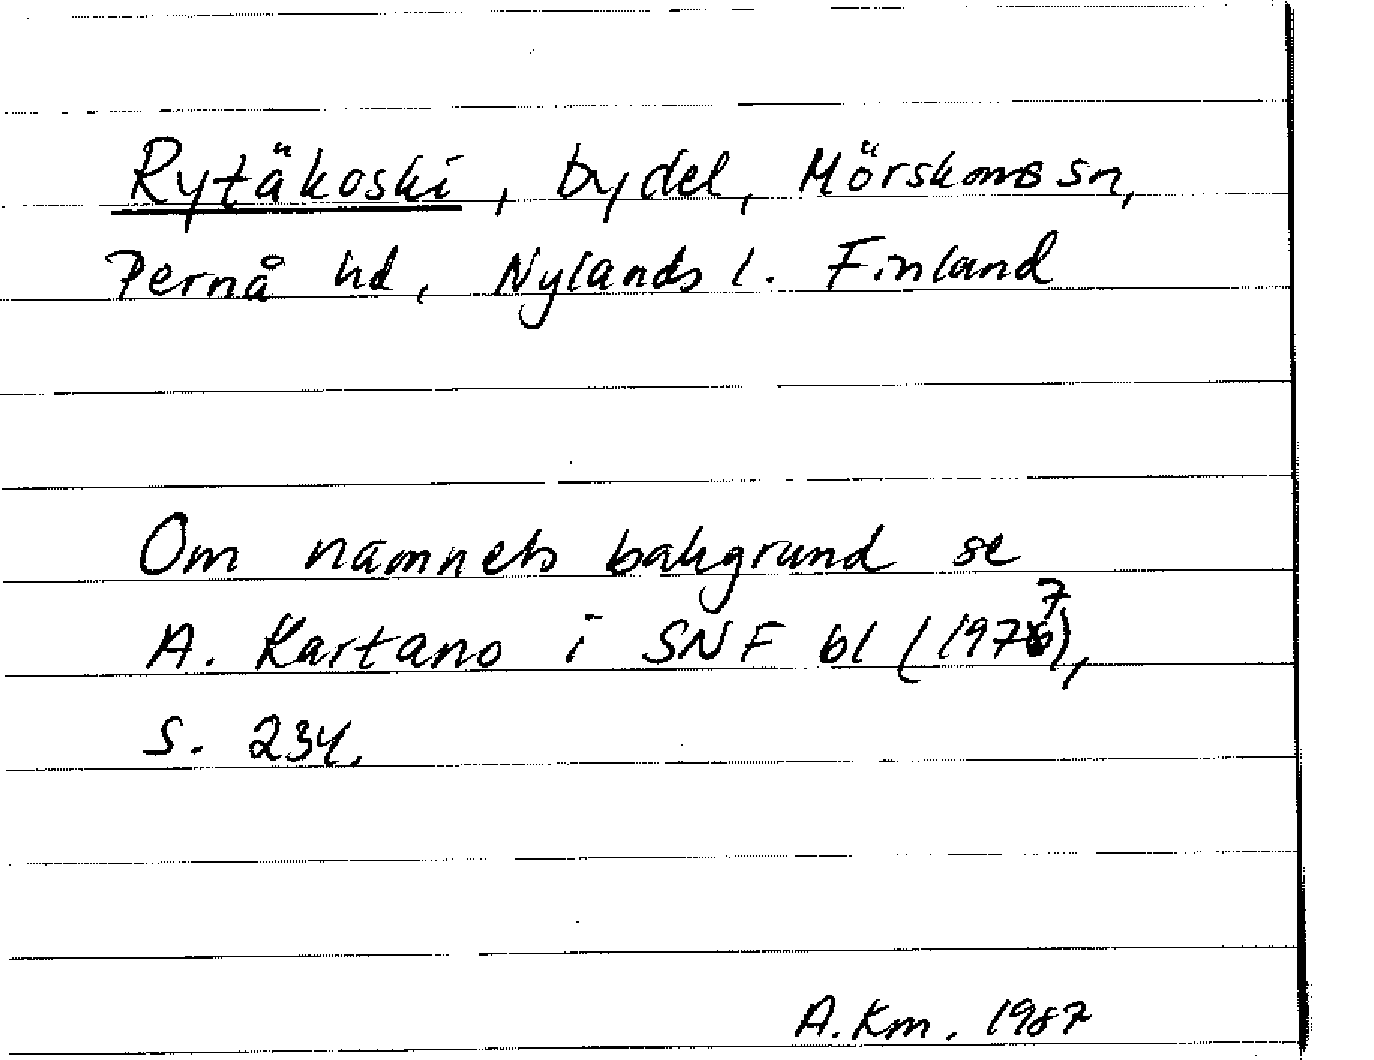 Rytäkoski, bydel, Mörskoms sn,
Pernå hd, Nylands l. Finland
Om namnets bakgrund se
A. Kartano i SNF 61 (1977),
s. 234.
A.Km. 1987